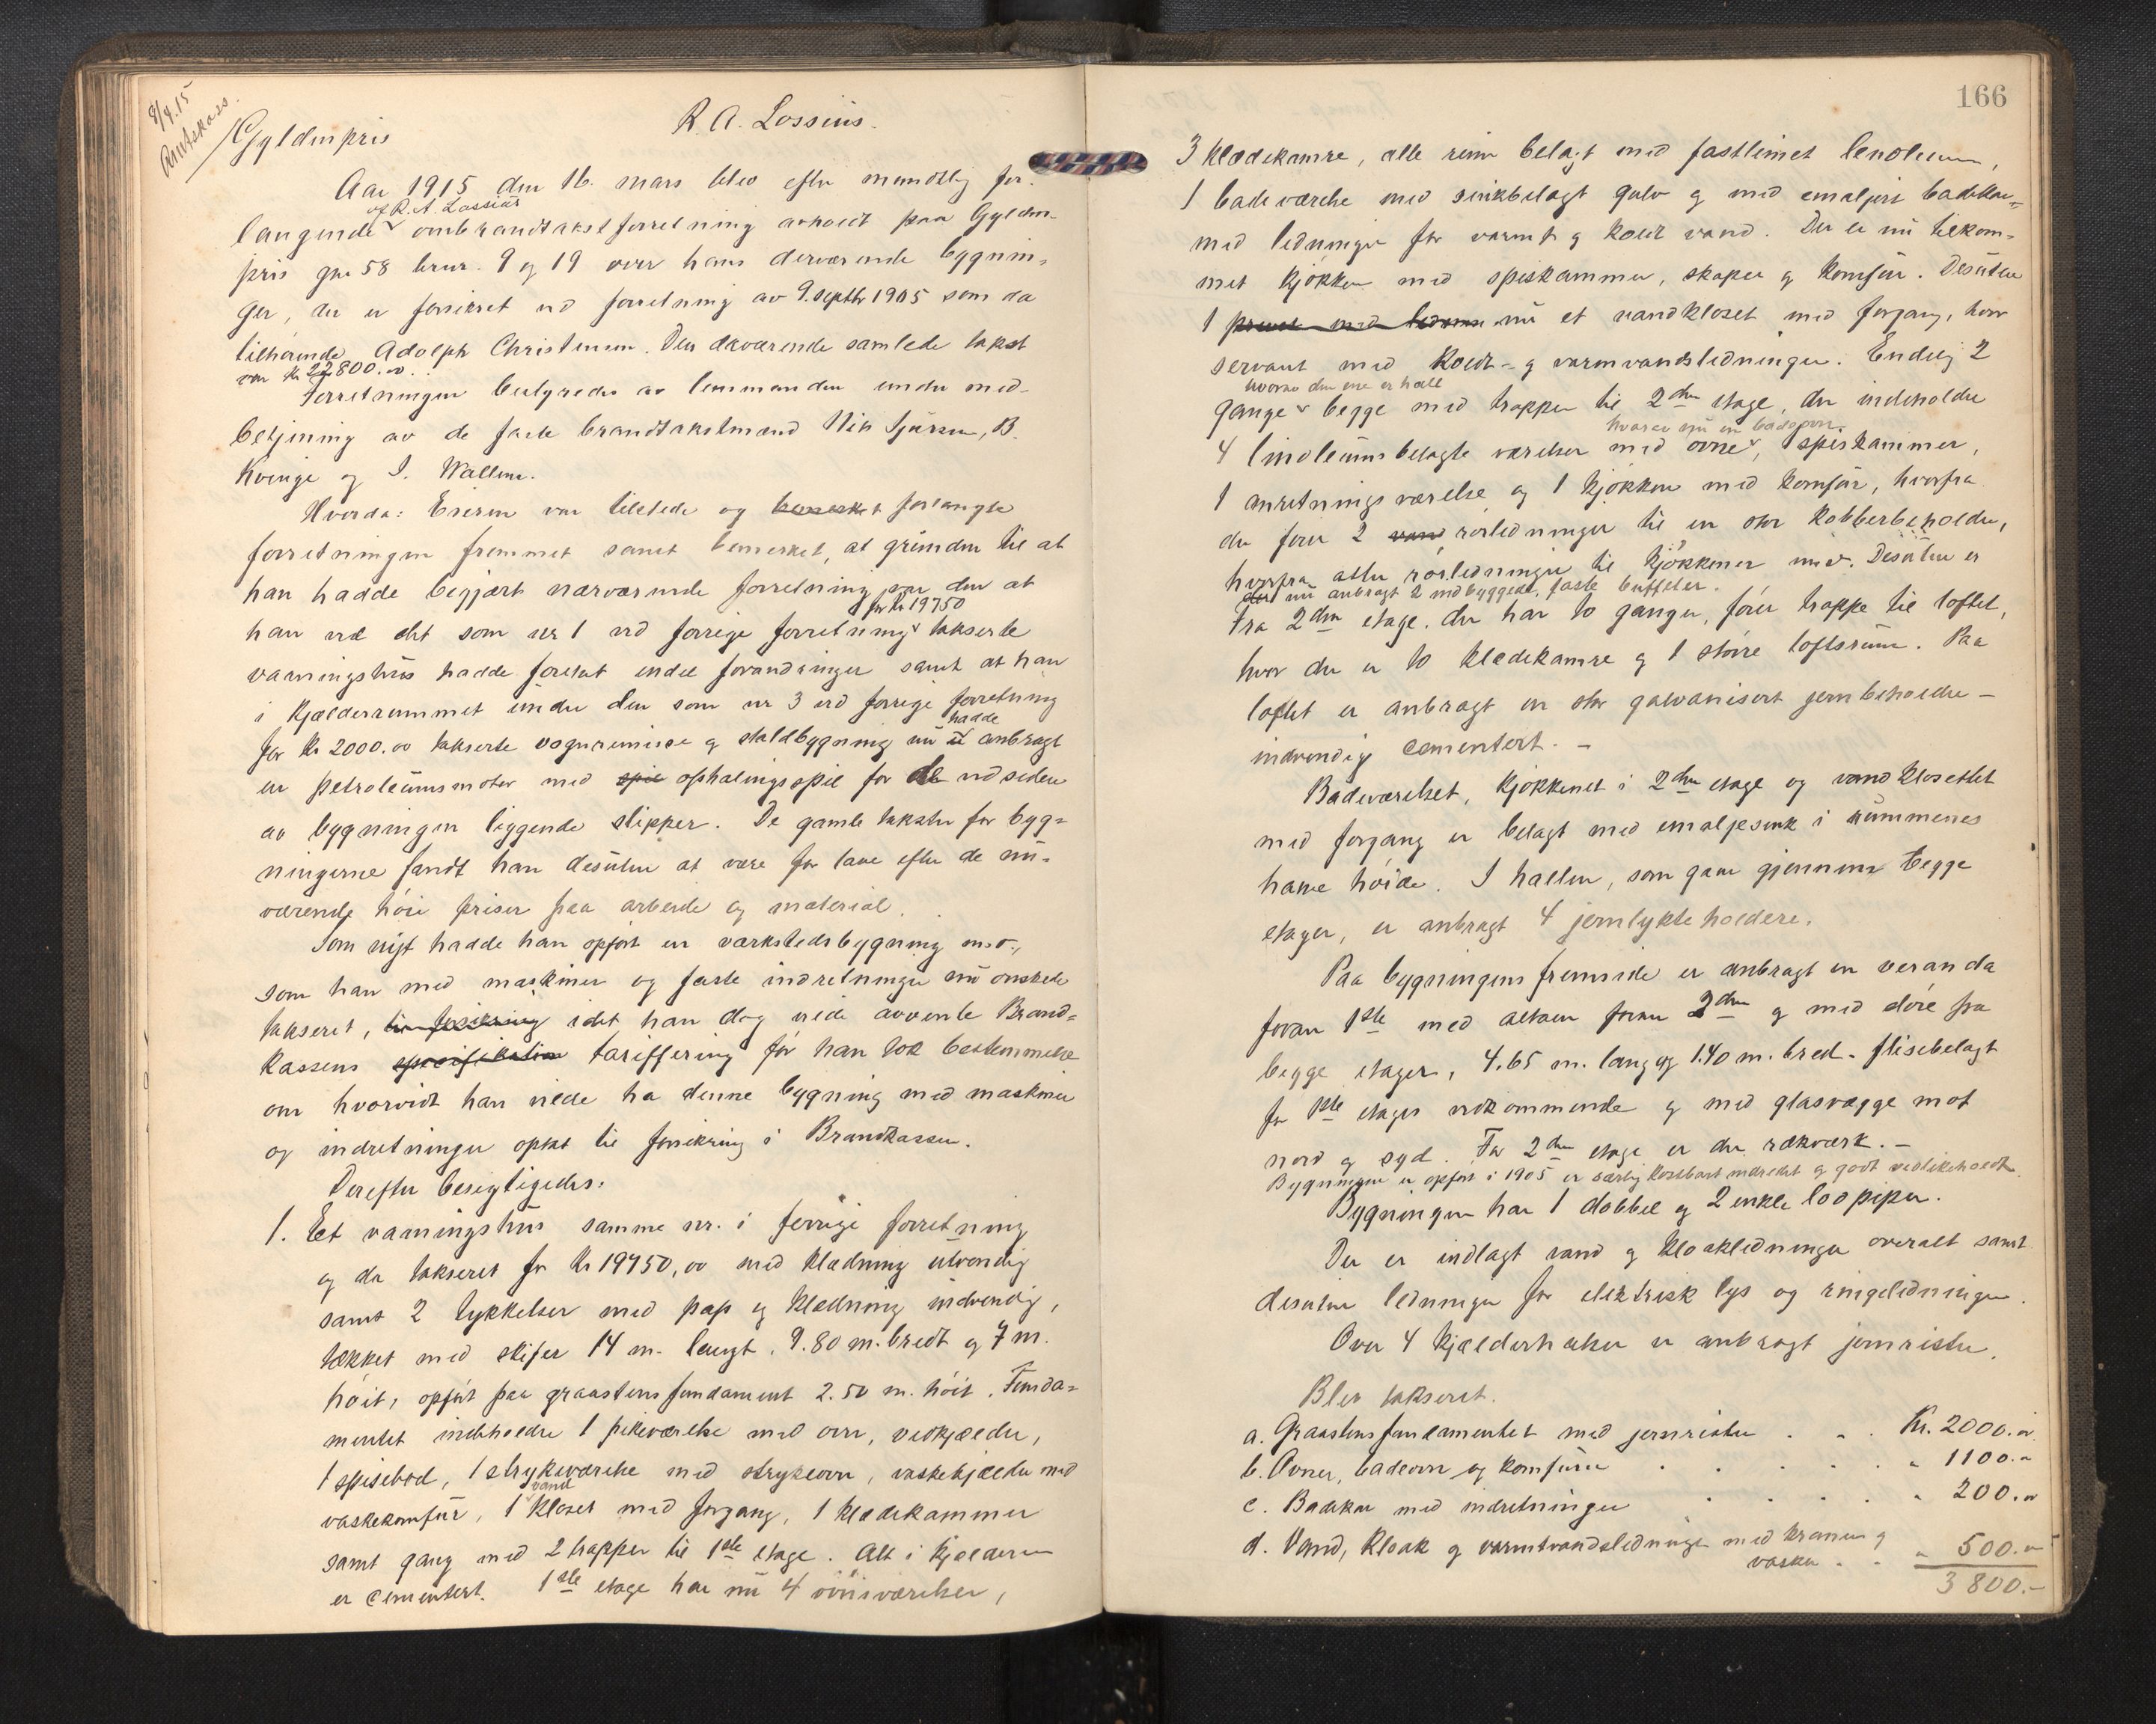 8/4.15
Gyldenpris
R. A. Lossius.
Aar 1915 den 16. mars blev efter mundtlig for-
langende af R. A. Lossius ombrandtakstforretning avholdt paa Gylden-
pris gnr 58 brnr. 9 og 19 over hans derværende bygnin-
ger, der er forsikret ved forretning av 9. septbr 1905 som da
tilhørende Adolph Christensen. Den daværende samlede takst
var kr 22800.00.
Forretningen bestyredes av lensmanden under med-
betjening av de faste brandtakstmænd Nils Sjursen, B.
Kvinge og I. Wallem.
Hvorda: Eieren var tilstede og bemerket forlangte
forretningen fremmet samt bemerket, at grunden til at
han hadde begjært nærværende forretning var den at
han ved det som nr 1 ved forrige forretning for kr 19750 takserte
vaaningshus hadde foretat endel forandringer samt at han
i kjælderrummet under den som nr 3 ved forrige forretning
for kr 2000.00 takserte vognremisse og staldbygning nu hadde anbragt
en petroleumsmotor med spil ophalingsspil for de ved siden
av bygningen liggende slipper. De gamle takster for byg-
ningerne fandt han desuten at være for lave efter de nu-
værende høie priser paa arbeide og material.
Som nyt hadde han opført en værkstedsbygning m.v.,
som han med maskiner og faste indretninger nu ønskede
takseret, til forsikring idet han dog vilde avvente Brand-
kassens specifikation tariffering før han tok bestemmelse
om hvorvidt han vilde ha denne bygning med maskiner
og indretninger optat til forsikring i Brandkassen.
Derefter besigtigedes:
1. Et vaaningshus samme nr. i forrige forretning
og da takseret for kr 19750,00 med klædning utvendig
samt 2 tykkelser med pap og klædning indvendig,
tækket med skifer 14 m. langt, 9.80 m. bredt og 7 m.
høit, opført paa graastensfundament 2.50 m. høit. Funda-
mentet indeholder 1 pikeværelse med ovn, vedkjælder,
1 spisebod, 1 strykeværelse med strykeovn, vaskekjælder med
vaskekomfur, 1 vandkloset med forgang, 1 klædekammer
samt gang med 2 trapper til 1ste etage. Alt i kjælderen
er cementert. 1ste etage har nu 4 ovnsværelser,
166
3 klædekamre, alle rum belagt med fastlimet linoleum,
1 badeværelse med sinkbelagt gulv og med emaljert badekar
med ledninger for varmt og koldt vand. Der er nu tilkom-
met kjøkken med spiskammer, skaper og komfur. Desuten
1 privet med ledning nu et vandkloset med forgang, hvor
servant med koldt- og varmvandsledninger. Endelig 2
gange hvorav den ene er hall begge med trapper til 2den etage, der indeholder
4 linoleumsbelagte værelser med ovne hvorav nu en badeovn, 1 spiskammer,
1 anretningsværelse og 1 kjøkken med komfur, hvorfra
der fører 2 vand rørledninger til en stor kobberbeholder,
hvorfra atter rørledninger til kjøkkener m.v. Desuten er
der nu anbragt 2 indbyggede, faste buffeter.
Fra 2den etage, der har to ganger, fører trappe til loftet,
hvor der er to klædekamre og 1 større loftsrum. Paa
loftet er anbragt en stor galvanisert jernbeholder -
indvendig cementert. -
Badeværelset, kjøkkenet i 2den etage og vandklosettet
med forgang er belagt med emaljesink i rummenes
halve høide. I hallen, som gaar gjennem begge
etager, er anbragt 4 jernlykteholdere.
Paa bygningens fremside er anbragt en veranda
foran 1ste med altan foran 2den og med døre fra
begge etager, 4.65 m. lang og 1.40 m. bred - flisebelagt
for 1ste etages vedkommende og med glasvægge mot
nord og syd. For 2den etage er der rækværk. -
Bygningen er opført i 1905 er særlig kostbart indredet og godt vedlikeholdt.
Bygningen har 1 dobbel og 2 enkle løppiper.
Der er indlagt vand og kloakledninger overalt samt
desuten ledninger for elektrisk lys og ringeledninger.
Over 4 kjælderhalser er anbragt jernrister.
Blev takseret.
a. Graastensfundamentet med jernrister . . . Kr. 2000.00
b. Ovner, badeovn og komfurer . . . . . . " 1100.00
c. Badekar med indretninger . . . . . " 200.00
d. Vand, kloak og varmtvandsledninger med kraner og
vasker . . " 500.00
3800.-